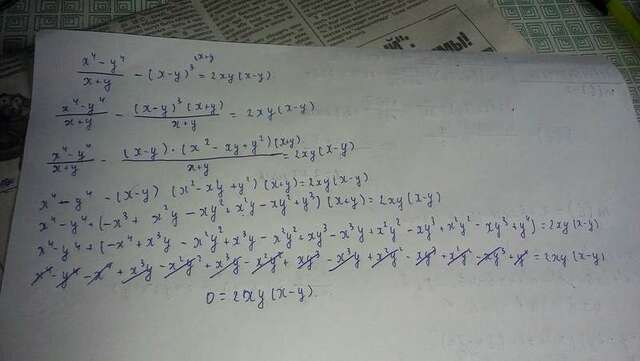 x⁴ - y⁴ / x+y - (x-y)³ ^(x+y) = 2xy(x-y)
x⁴ - y⁴ / x+y - (x-y)³(x+y) / x+y = 2xy(x-y)
x⁴ - y⁴ / x+y - (x-y)·(x² - xy + y²)(x+y) / x+y = 2xy(x-y)
x⁴ - y⁴ - (x-y)(x² - xy + y²)(x+y) = 2xy(x-y)
x⁴ - y⁴ + (-x³ + x²y - xy² + x²y - xy² + y³)(x+y) = 2xy(x-y)
x⁴ - y⁴ + (-x⁴ + x³y - x²y² + x³y - x²y² + xy³ - x³y + x²y² - xy³ + x²y² - xy³ + y⁴) = 2xy(x-y)
x⁴ - y⁴ - x⁴ + x³y - x²y² + x³y - x²y² + xy³ - x³y + x²y² - xy³ + x²y² - xy³ + y⁴ = 2xy(x-y)
0 = 2xy(x-y).